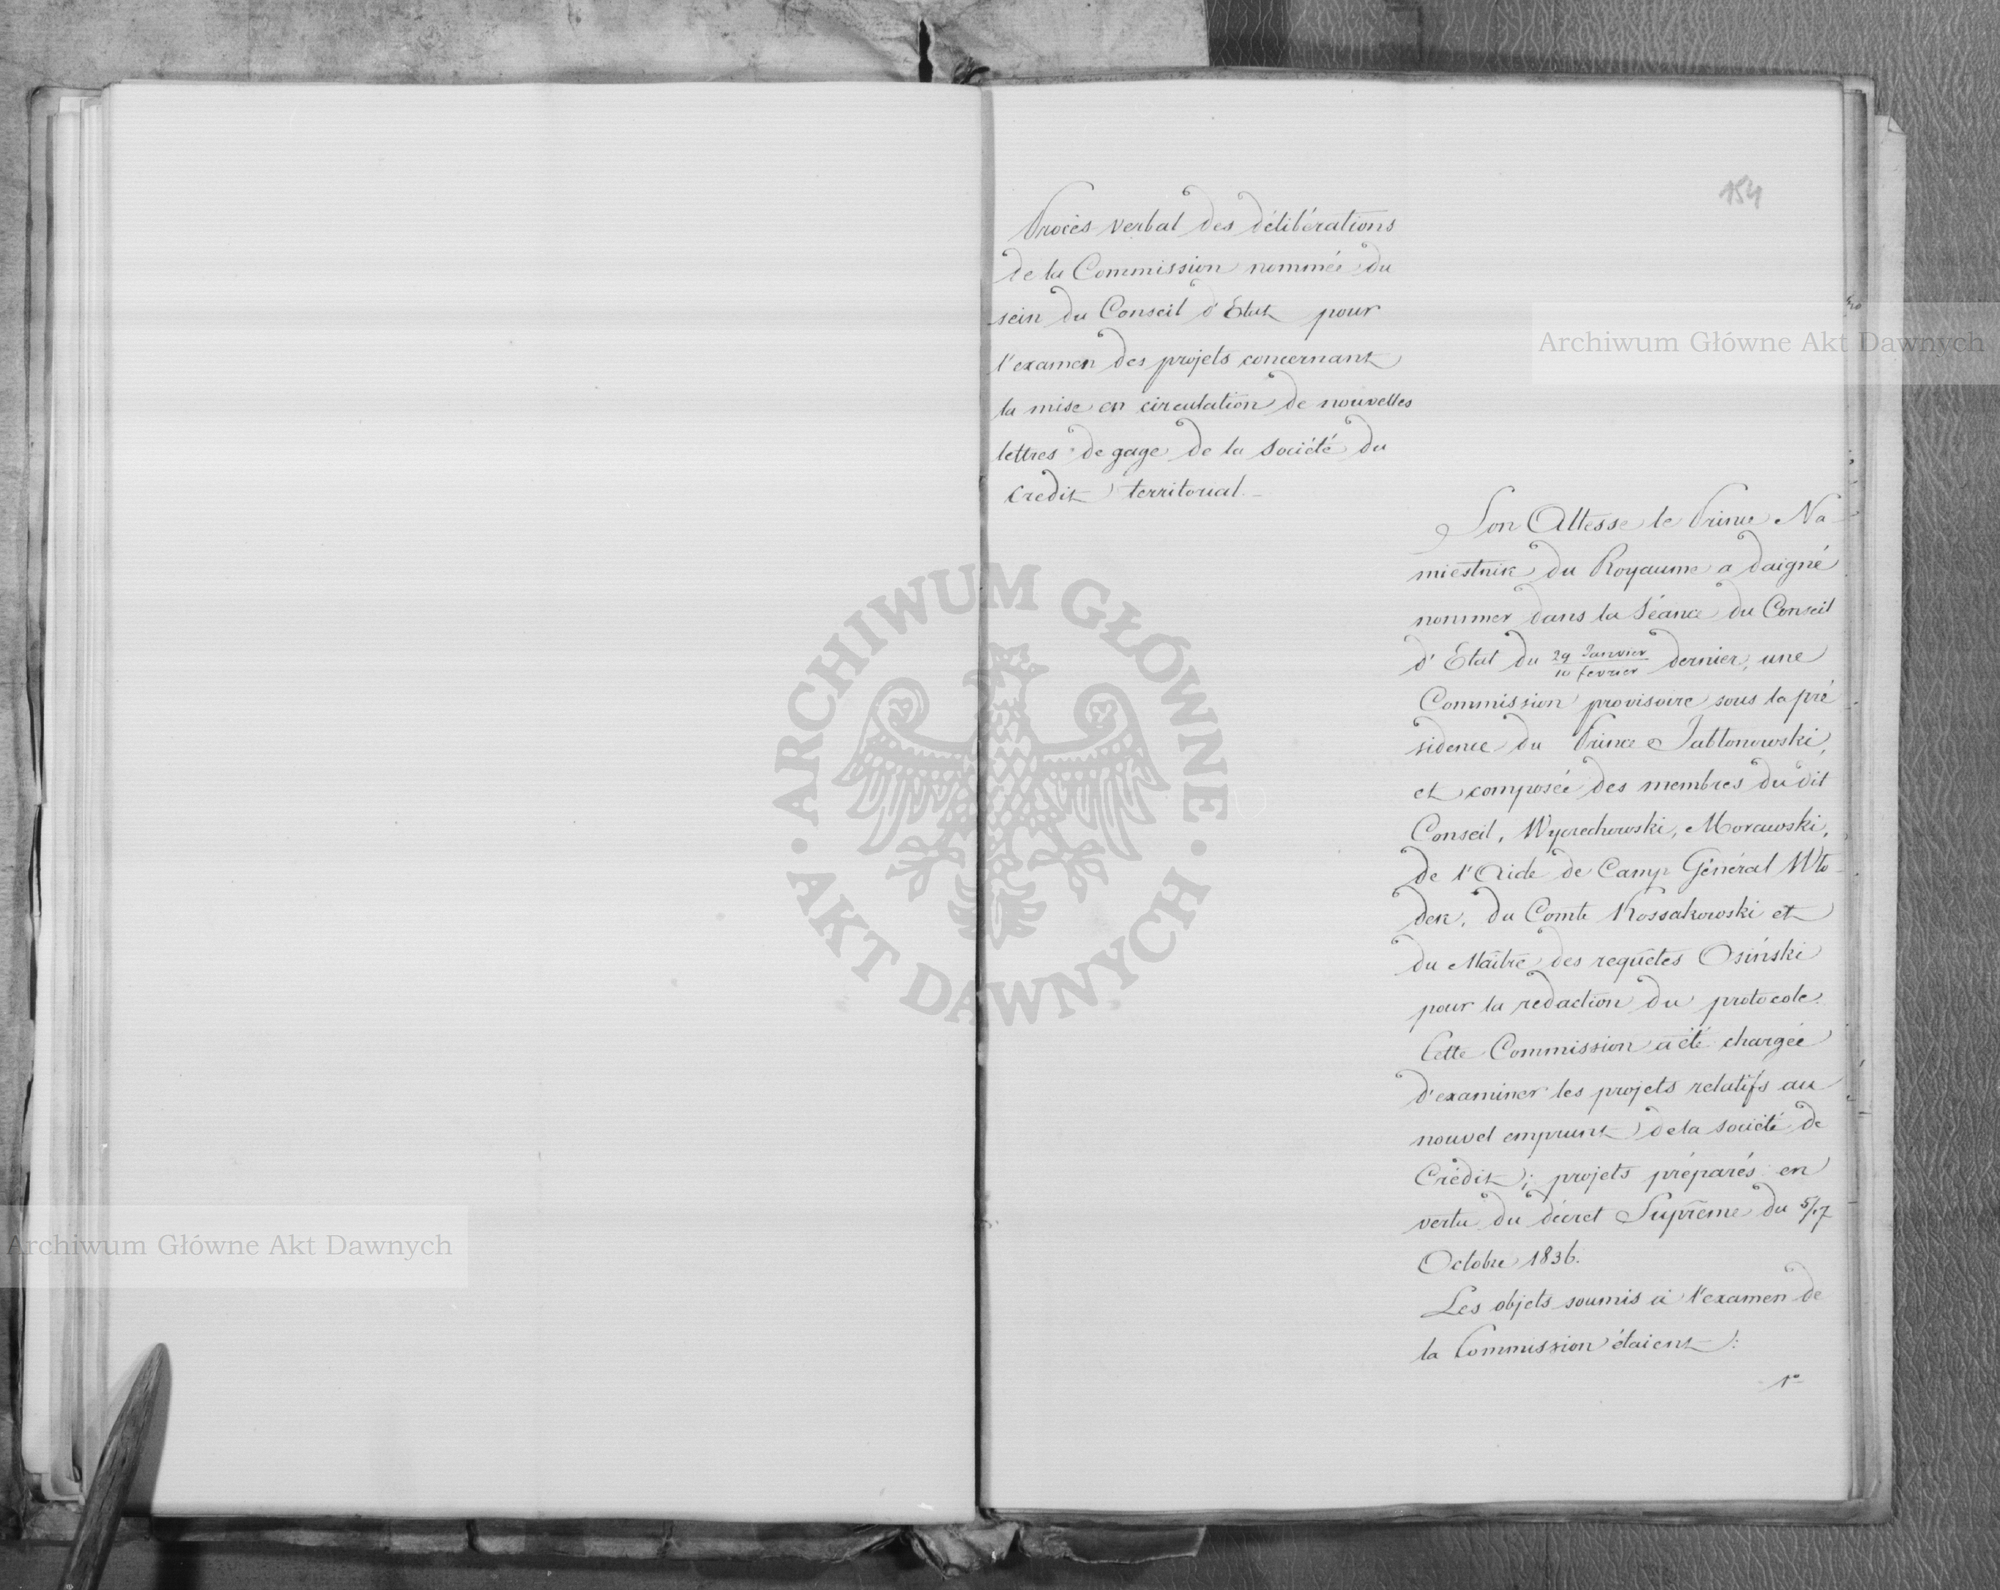 154
Procès verbal des délibérations
de la Commission nommée du
sein du Conseil d'Etat pour
l'examen des projets concernant
la mise en circulation de nouvelles
lettres de gage de la Société du
Credit territorial.
Son Altesse le Prince Na-
miestnik du Royaume a daigné
nommer dans la Séance du Conseil
d'Etat du 29 Janvier/10 fevrier dernier, une
Commission provisoire sous la pré
sidence du Prince Jabłonowski,
et composée des membres du dit
Conseil, Wyczechowski, Morawski,
de l'Aide de Camp Général Wło-
dek, du Comte Kossakowski et
du Maître des requêtes Osiński
pour la redaction du protocole.
Cette Commission a été chargée
d'examiner les projets relatifs au
nouvel emprunt de la société de
Crédit; projets préparés en
vertu du décret Suprême du 5/17
Octobre 1836.
Les objets soumis à l'examen de
la Commission étaient:
1°
Archiwum Główne Akt Dawnych
ARCHIWUM GŁÓWNE · AKT DAWNYCH ·
Archiwum Główne Akt Dawnych